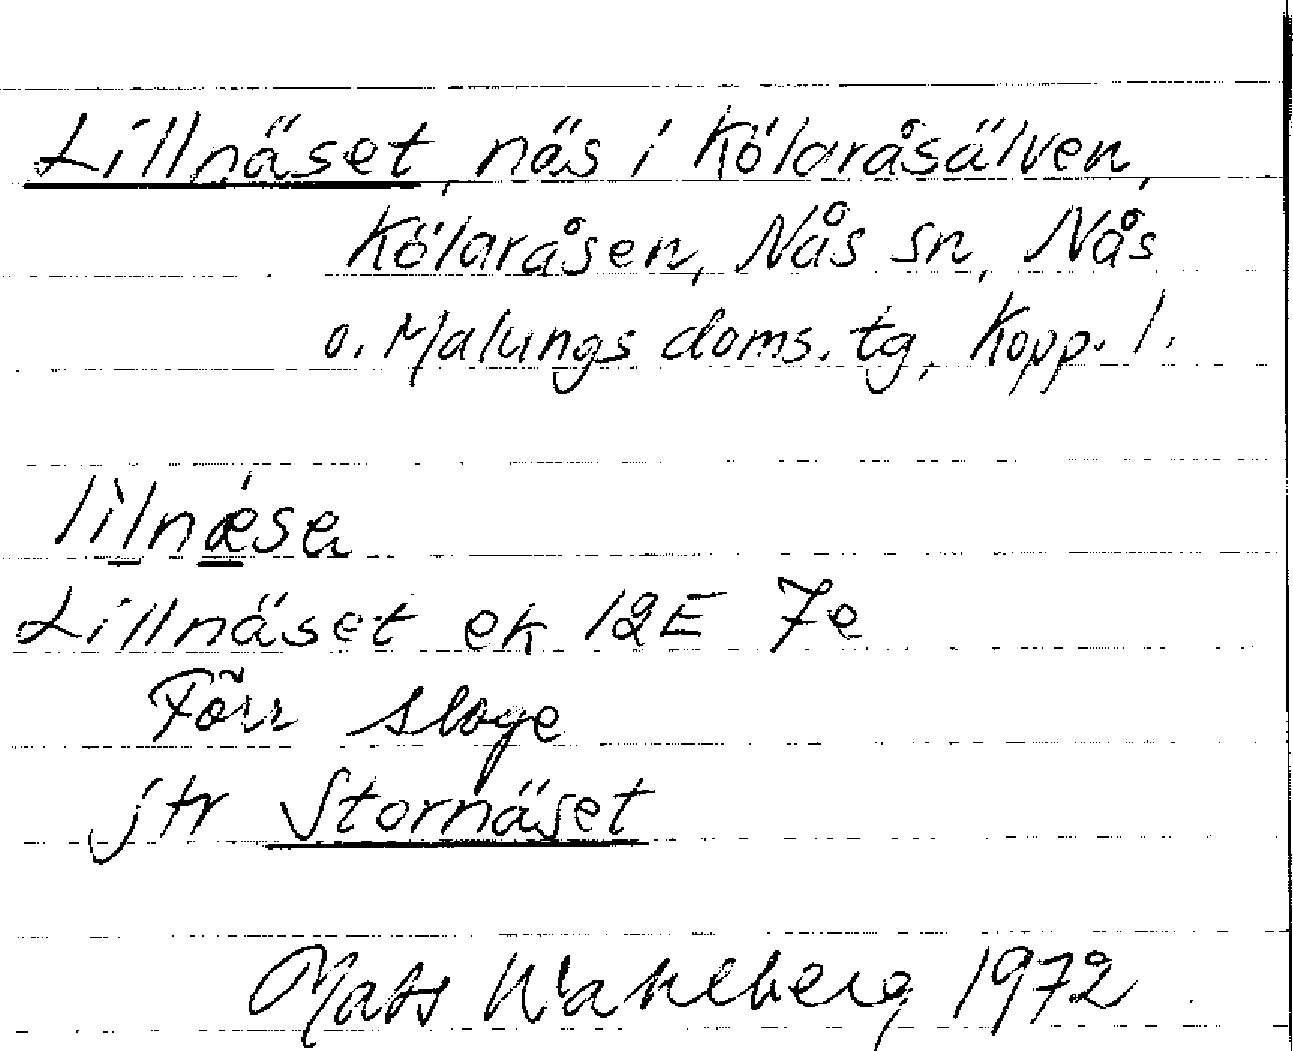 Lillnäset, näs i Kölaråsälven,
Kölaråsen, Nås sn, Nås
o. Malungs doms. tg, Kopp. l.
lìlnǽsa
Lillnäset ek 12E 7e
Förr sloge
jfr Stornäset
Mats Wahlberg 1972